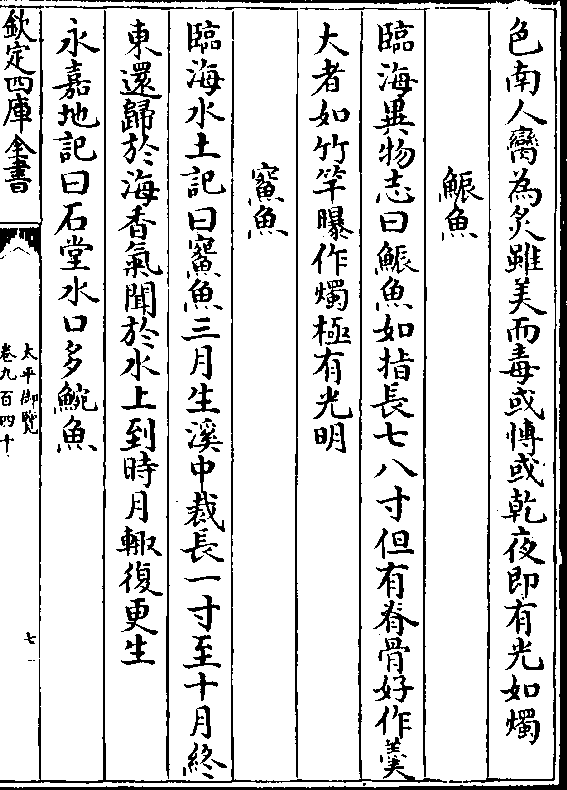 色南人臠為炙雖美而毒或愽或乾夜即有光如燭
䱅魚
臨海異物志曰䱅魚如指長七八寸但有脊骨好作羹
大者如竹竿曝作燭極有光明
鰘魚
臨海水土記曰鰘魚三月生溪中裁長一寸至十月終
東還歸於海香氣聞於水上到時月輙復更生
永嘉地記曰石堂水口多䱎魚
欽定四庫全書
太平御覽
卷九百四十
七